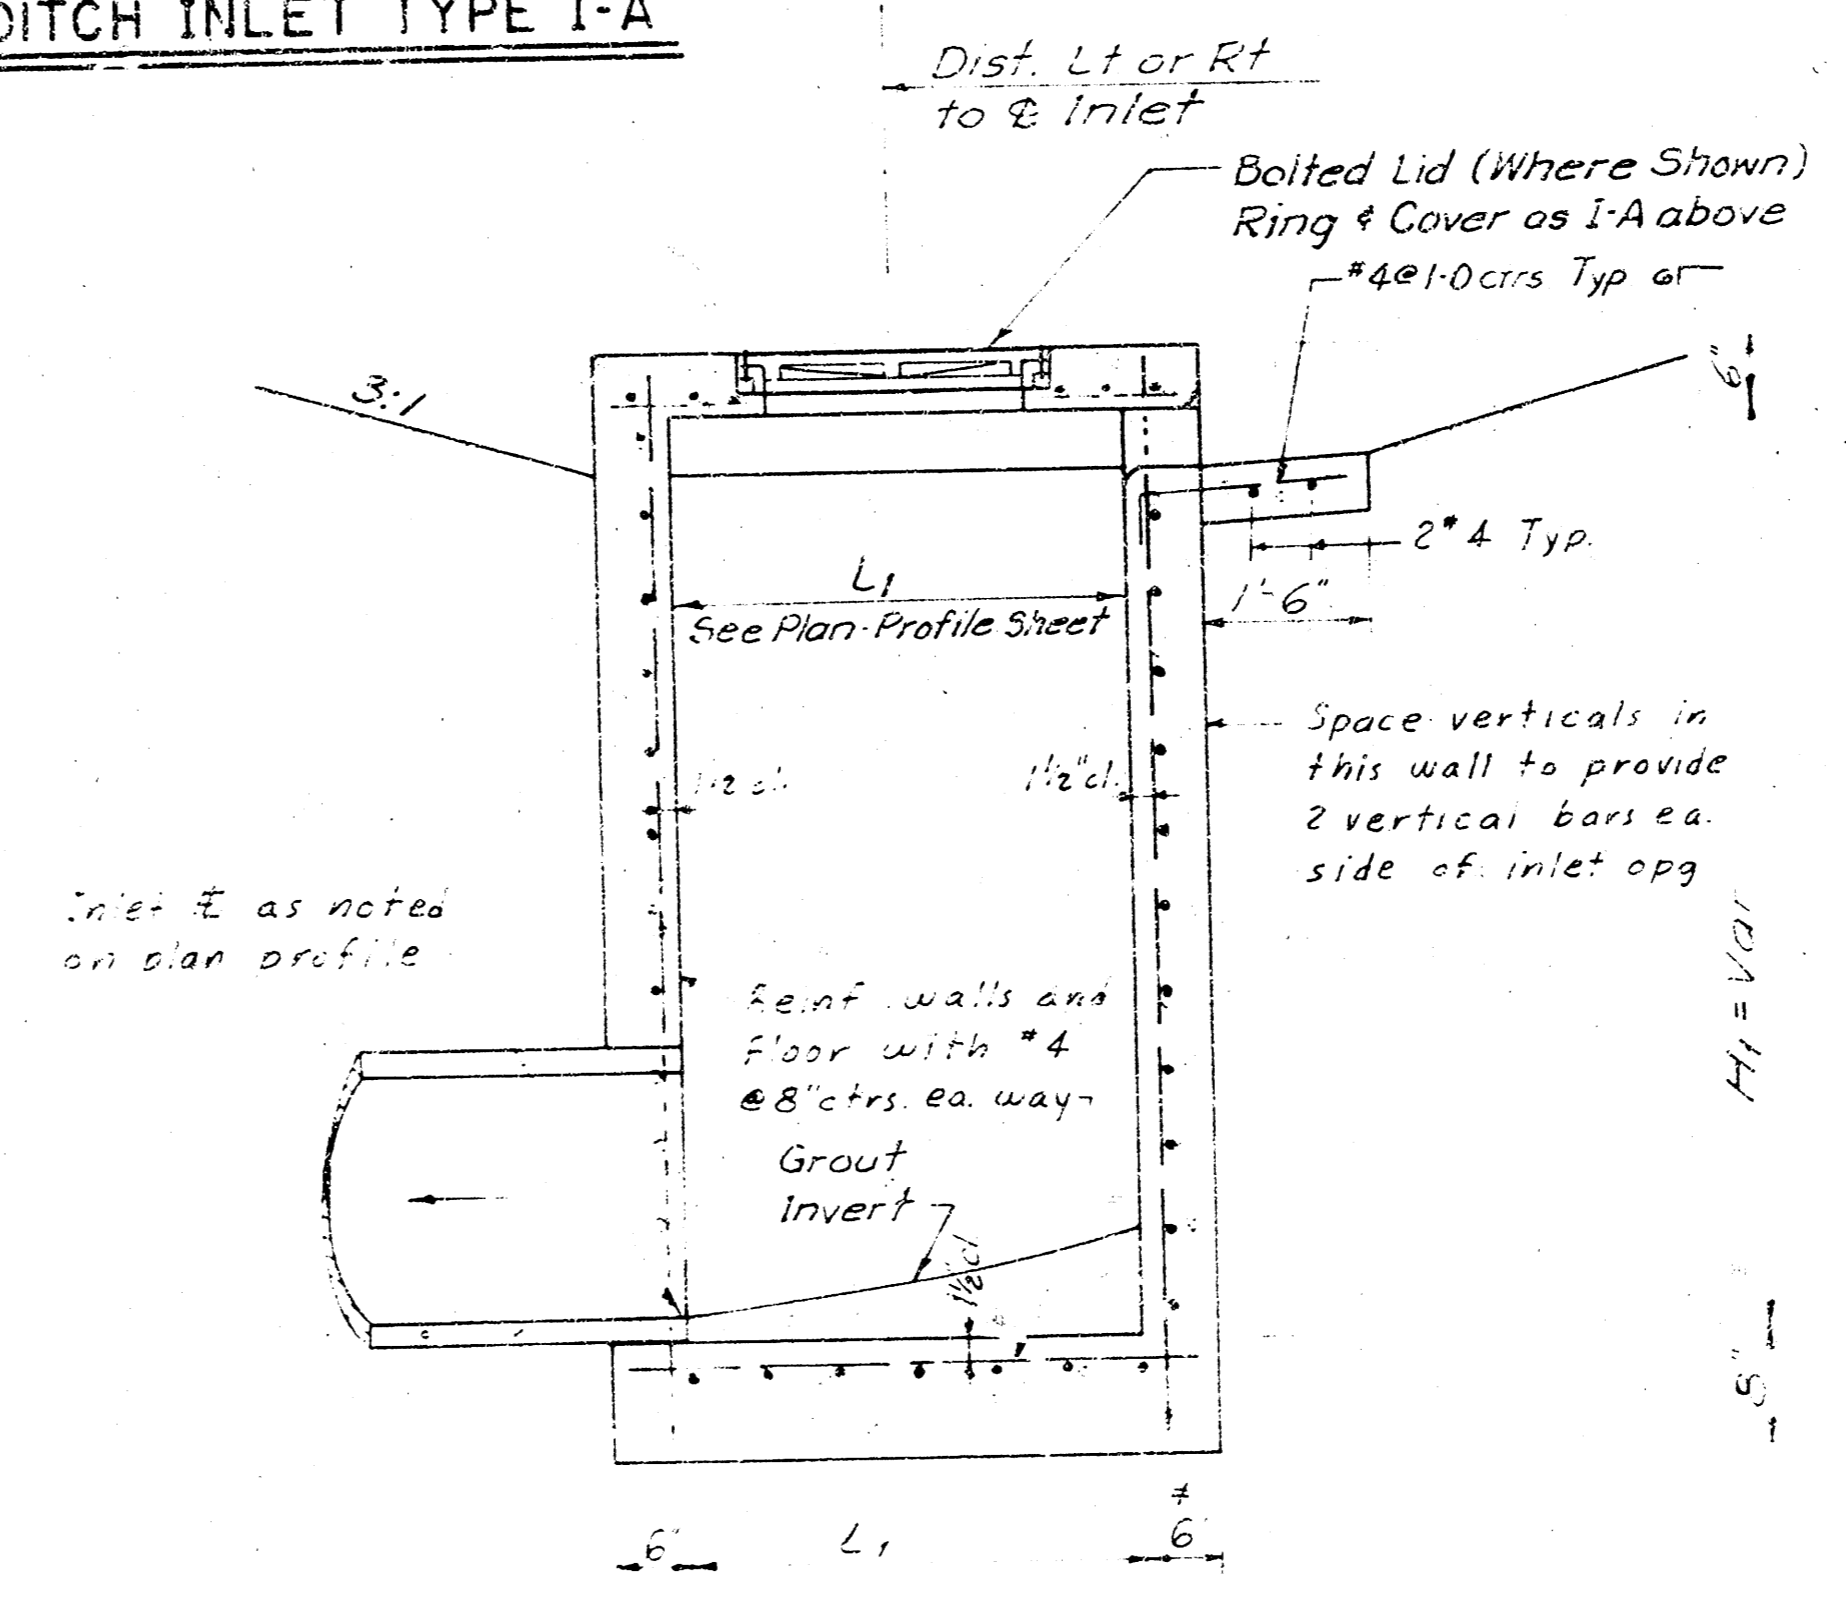 DITCH INLET TYPE I-A
Dist. Lt or Rt
to ℄ Inlet
Bolted Lid (Where Shown)
Ring & Cover as I-A above
#4@1-0 ctrs Typ
3:1
6"
2#4 Typ.
L1
See Plan-Profile Sheet
1'-6"
Space verticals in
this wall to provide
2 vertical bars ea.
side of inlet opg
1½ cl.
1½" cl.
Inlet ℄ as noted
on plan profile
H1 = Var
Reinf. walls and
Floor with #4
@ 8" ctrs. ea. way
Grout
Invert
1½" cl
6"
L1
6"